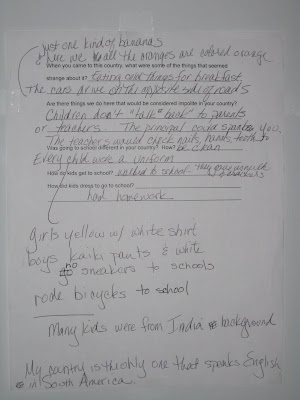 just one kind of bananas
here we all the oranges are colored orange
When you came to this country, what were some of the things that seemed
strange about it? Eating cold things for breakfast,
The cars drive on the opposite side of roads
Are there things we do here that would be considered impolite in your country?
Children don't "talk back" to parents
or teachers. The principal could spank you.
The teachers would check nails, hands, teeth to
Was going to school different in your country? How? be clean
Every child wore a uniform
How do kids get to school? walked to school -
How did kids dress to go to school?
had homework
girls yellow w/ white shirt
boys kaiki pants & white
no sneakers to schools
rode bicycles to school
Many kids were from India background
My cantry is the only one that speaks English
in South America.